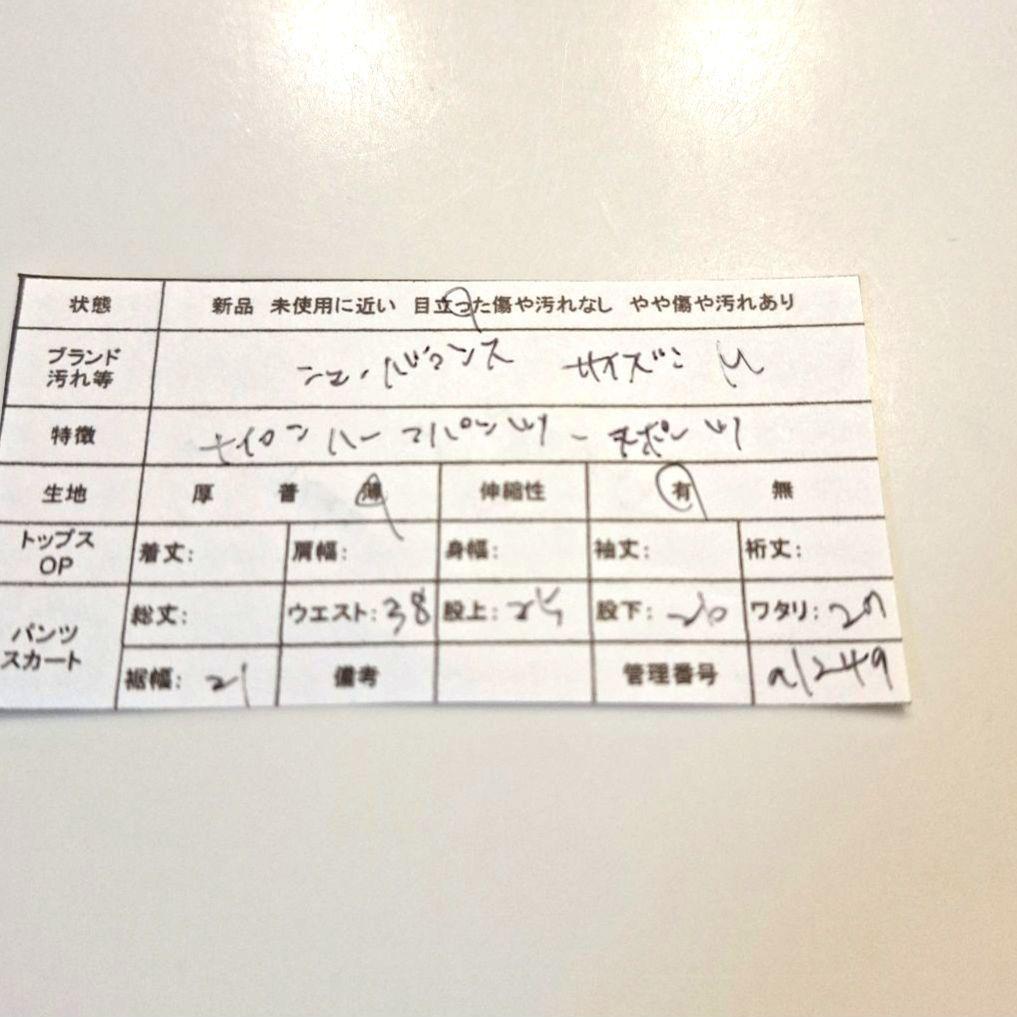 状態 新品 未使用に近い 目立った傷や汚れなし やや傷や汚れあり
ブランド 汚れ等 ニューバランス サイズ: M
特徴 ナイロン ハーフパンツ スポーツ
生地 厚 普 薄 伸縮性 有 無
トップス OP 着丈: 肩幅: 身幅: 袖丈: 裄丈:
パンツ スカート 総丈: ウエスト: 38 股上: 25 股下: 20 ワタリ:
裾幅: 21 備考 管理番号 a1249